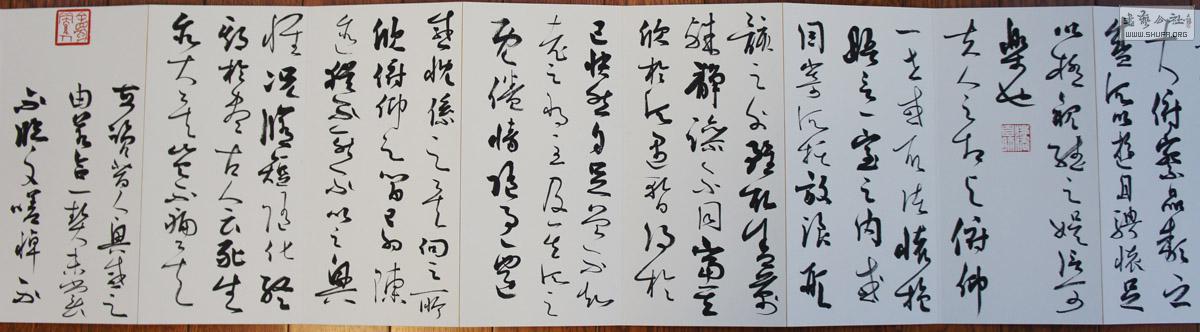 之大俯察品類之
盛所以遊目騁懷足
以極視聽之娛信可
樂也
夫人之相與俯仰
一世或取諸懷抱
悟言一室之內或
因寄所託放浪形
骸之外雖取舍萬
殊靜躁不同當其
欣於所遇暫得於
己快然自足曾不知
老之將至及其所之
既倦情隨事遷
感慨係之矣向之所
欣俯仰之間已為陳
迹猶不能不以之興
懷況脩短隨化終
期於盡古人云死生
亦大矣豈不痛哉
每攬昔人興感之
由若合一契未嘗
不臨文嗟悼不
WWW.SHUFA.ORG